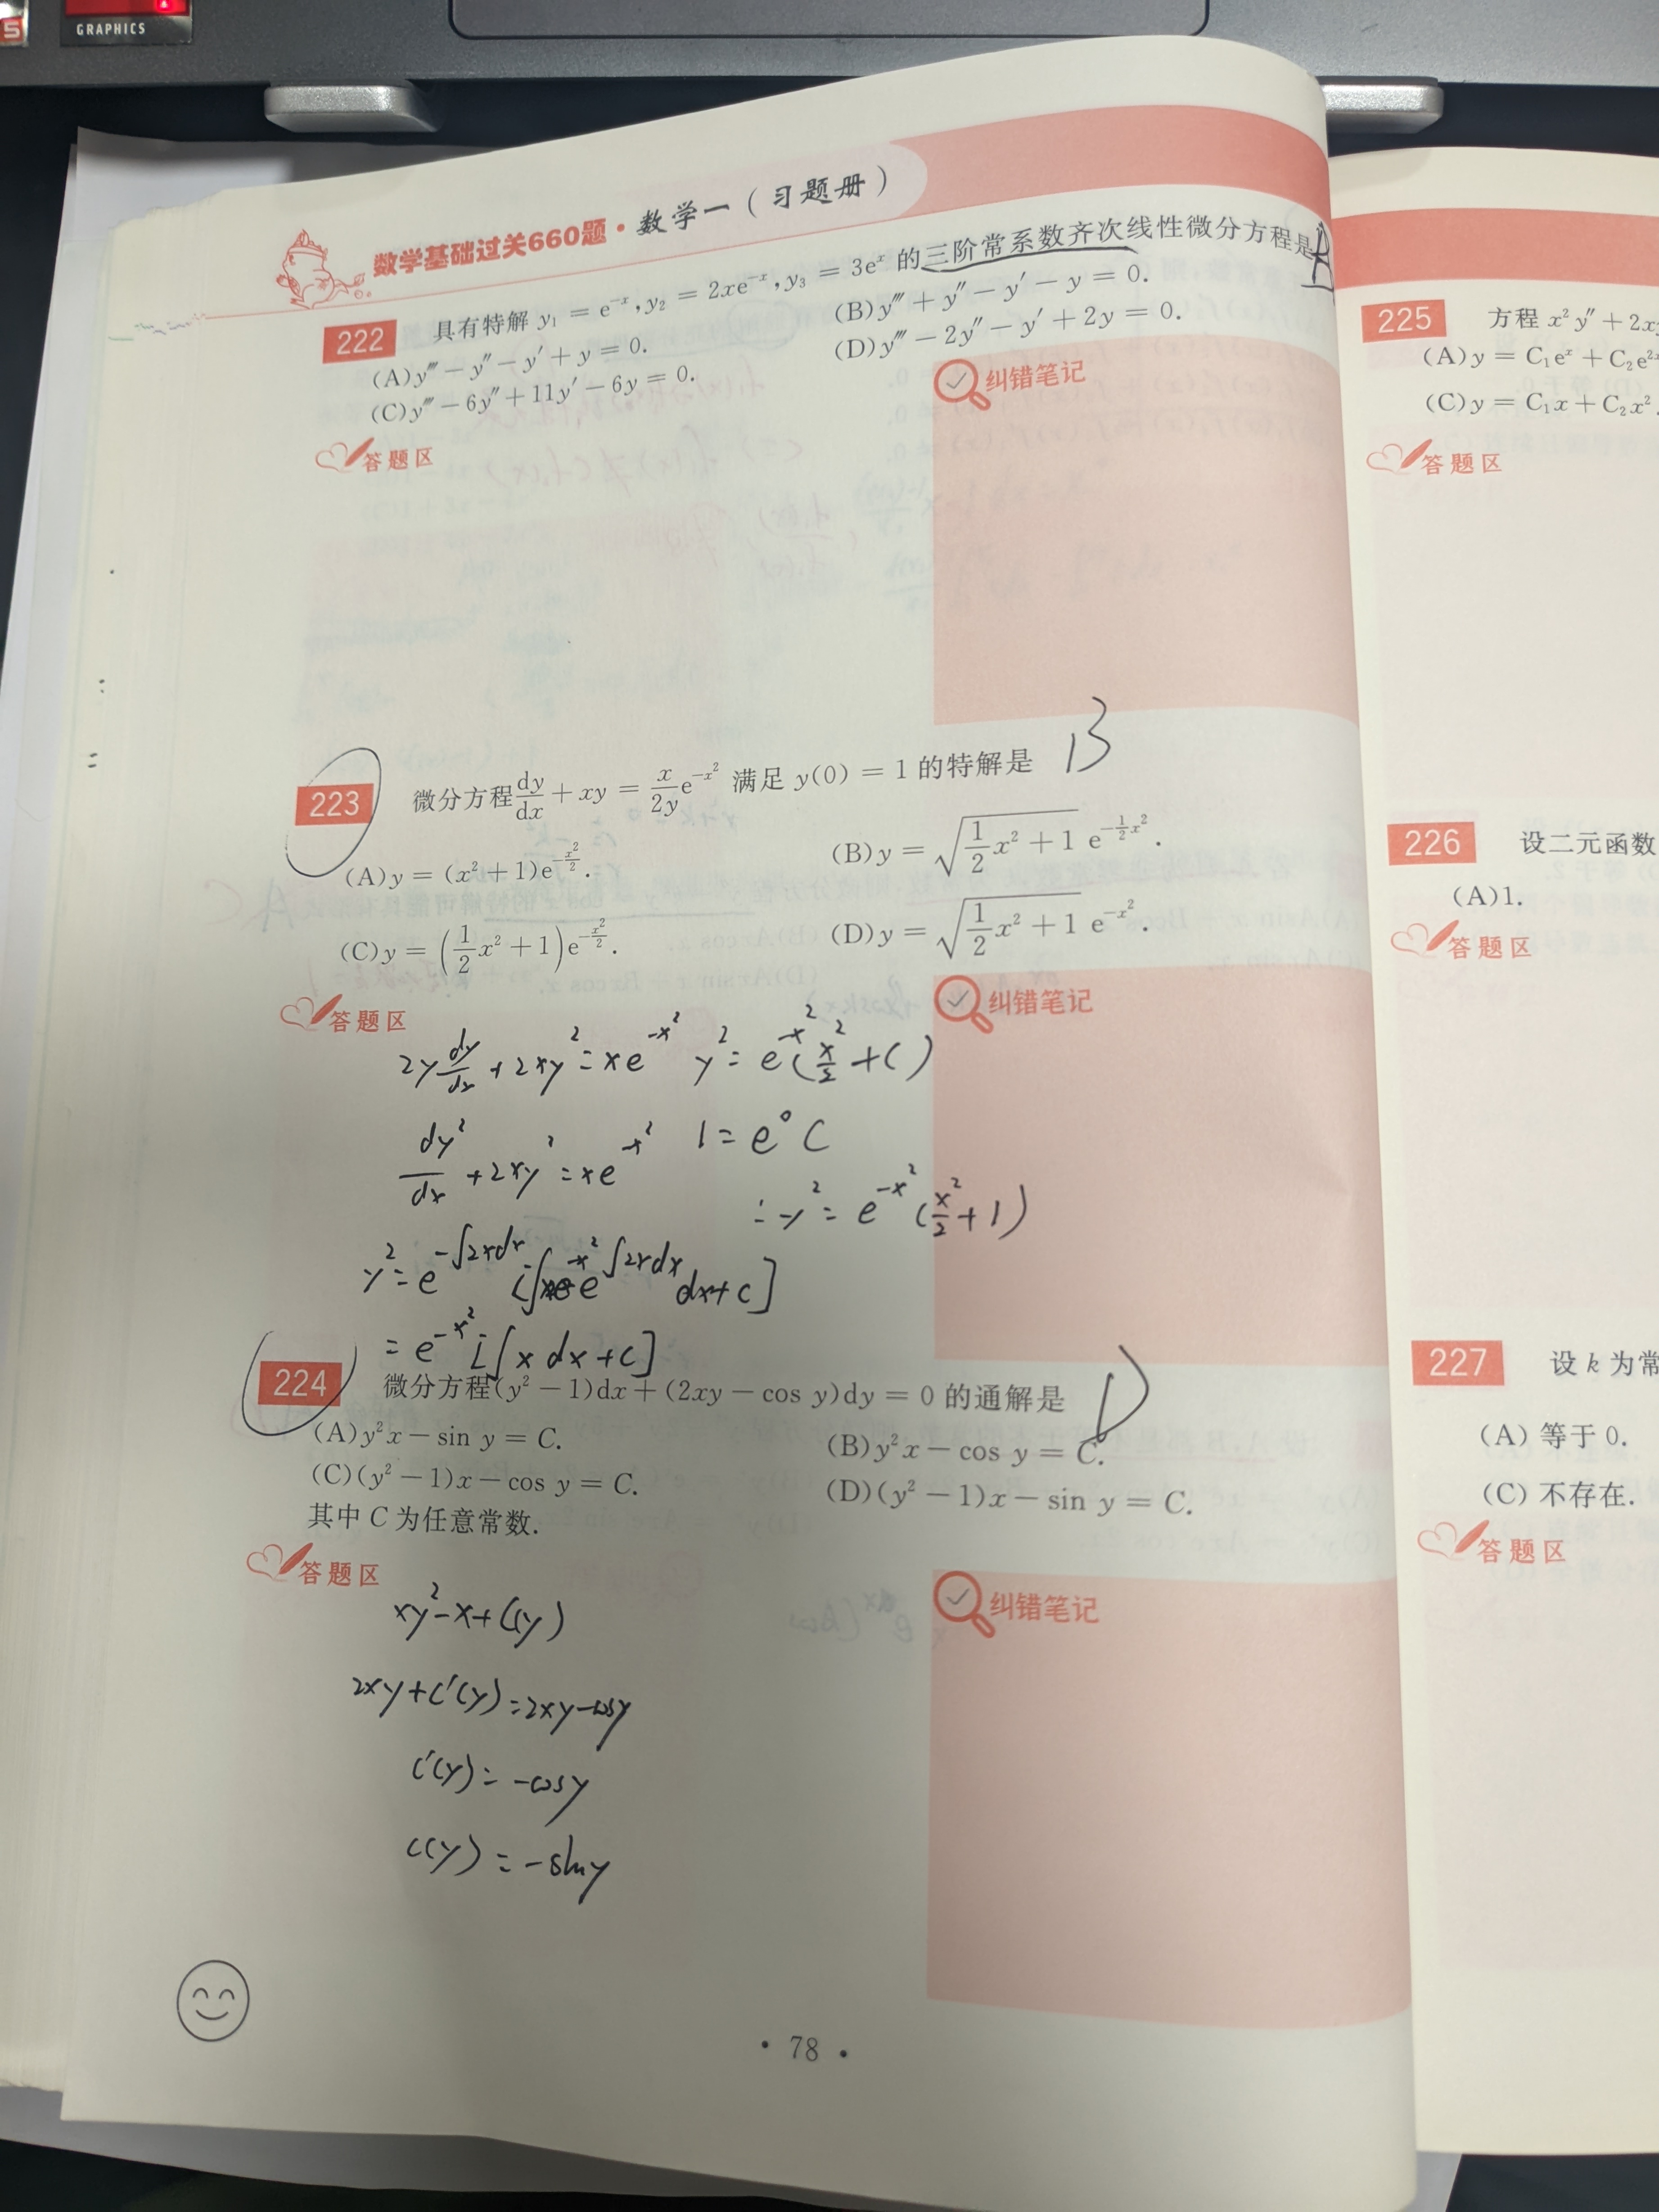 5
GRAPHICS
数学基础过关660题·数学一(习题册)
222 具有特解 y₁ = e⁻ˣ, y₂ = 2xe⁻ˣ, y₃ = 3eˣ 的三阶常系数齐次线性微分方程是
(A) y‴ − y″ − y′ + y = 0.
(B) y‴ + y″ − y′ − y = 0.
(C) y‴ − 6y″ + 11y′ − 6y = 0.
(D) y‴ − 2y″ − y′ + 2y = 0.
答题区
纠错笔记
223 微分方程 dy/dx + xy = x/(2y) e^(−x²) 满足 y(0) = 1 的特解是 B
(A) y = (x² + 1)e^(−x²/2).
(B) y = √(1/2 x² + 1) e^(−1/2 x²).
(C) y = (1/2 x² + 1)e^(−x²/2).
(D) y = √(1/2 x² + 1) e^(−x²).
答题区
纠错笔记
2y dy/dx + 2xy² = xe^(−x²)
dy²/dx + 2xy² = xe^(−x²)
y² = e^(−∫2xdx) [∫xe^(−x²) e^(∫2xdx) dx + C]
= e^(−x²) [∫x dx + C]
y² = e^(−x²) (x²/2 + C)
1 = e⁰ C
∴ y² = e^(−x²) (x²/2 + 1)
224 微分方程(y² − 1)dx + (2xy − cos y)dy = 0 的通解是 D
(A) y²x − sin y = C.
(B) y²x − cos y = C.
(C) (y² − 1)x − cos y = C.
(D) (y² − 1)x − sin y = C.
其中 C 为任意常数.
答题区
纠错笔记
xy² − x + C(y)
2xy + C′(y) = 2xy − cosy
C′(y) = −cosy
C(y) = −siny
· 78 ·
225 方程 x²y″ + 2xy
(A) y = C₁eˣ + C₂e²
(C) y = C₁x + C₂x².
答题区
226 设二元函数
(A) 1.
答题区
227 设 k 为常
(A) 等于 0.
(C) 不存在.
答题区